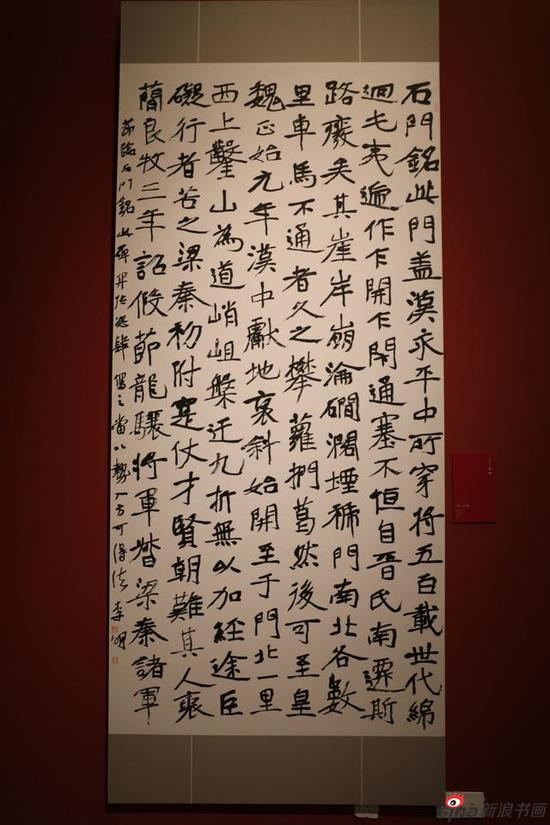 石門銘此門盖漢永平中所穿將五百載世代綿
迴戎夷遞作乍開乍閉通塞不恒自晉氏南遷斯
路廢矣其崖岸崩淪磵閣堙褫門南北各數
里車馬不通者久之攀蘿捫葛然後可至皇
魏正始元年漢中獻地褒斜始開至于門北一里
西上鑿山為道峭岨槃迂九折無以加經途巨
礙行者苦之梁秦初附寔仗才賢朝難其人褒
簡良牧三年詔假節龍驤將軍督梁秦諸軍
節臨石門銘此碑飛恣肆寫之當以勢入方可得法李明
sina新浪书画